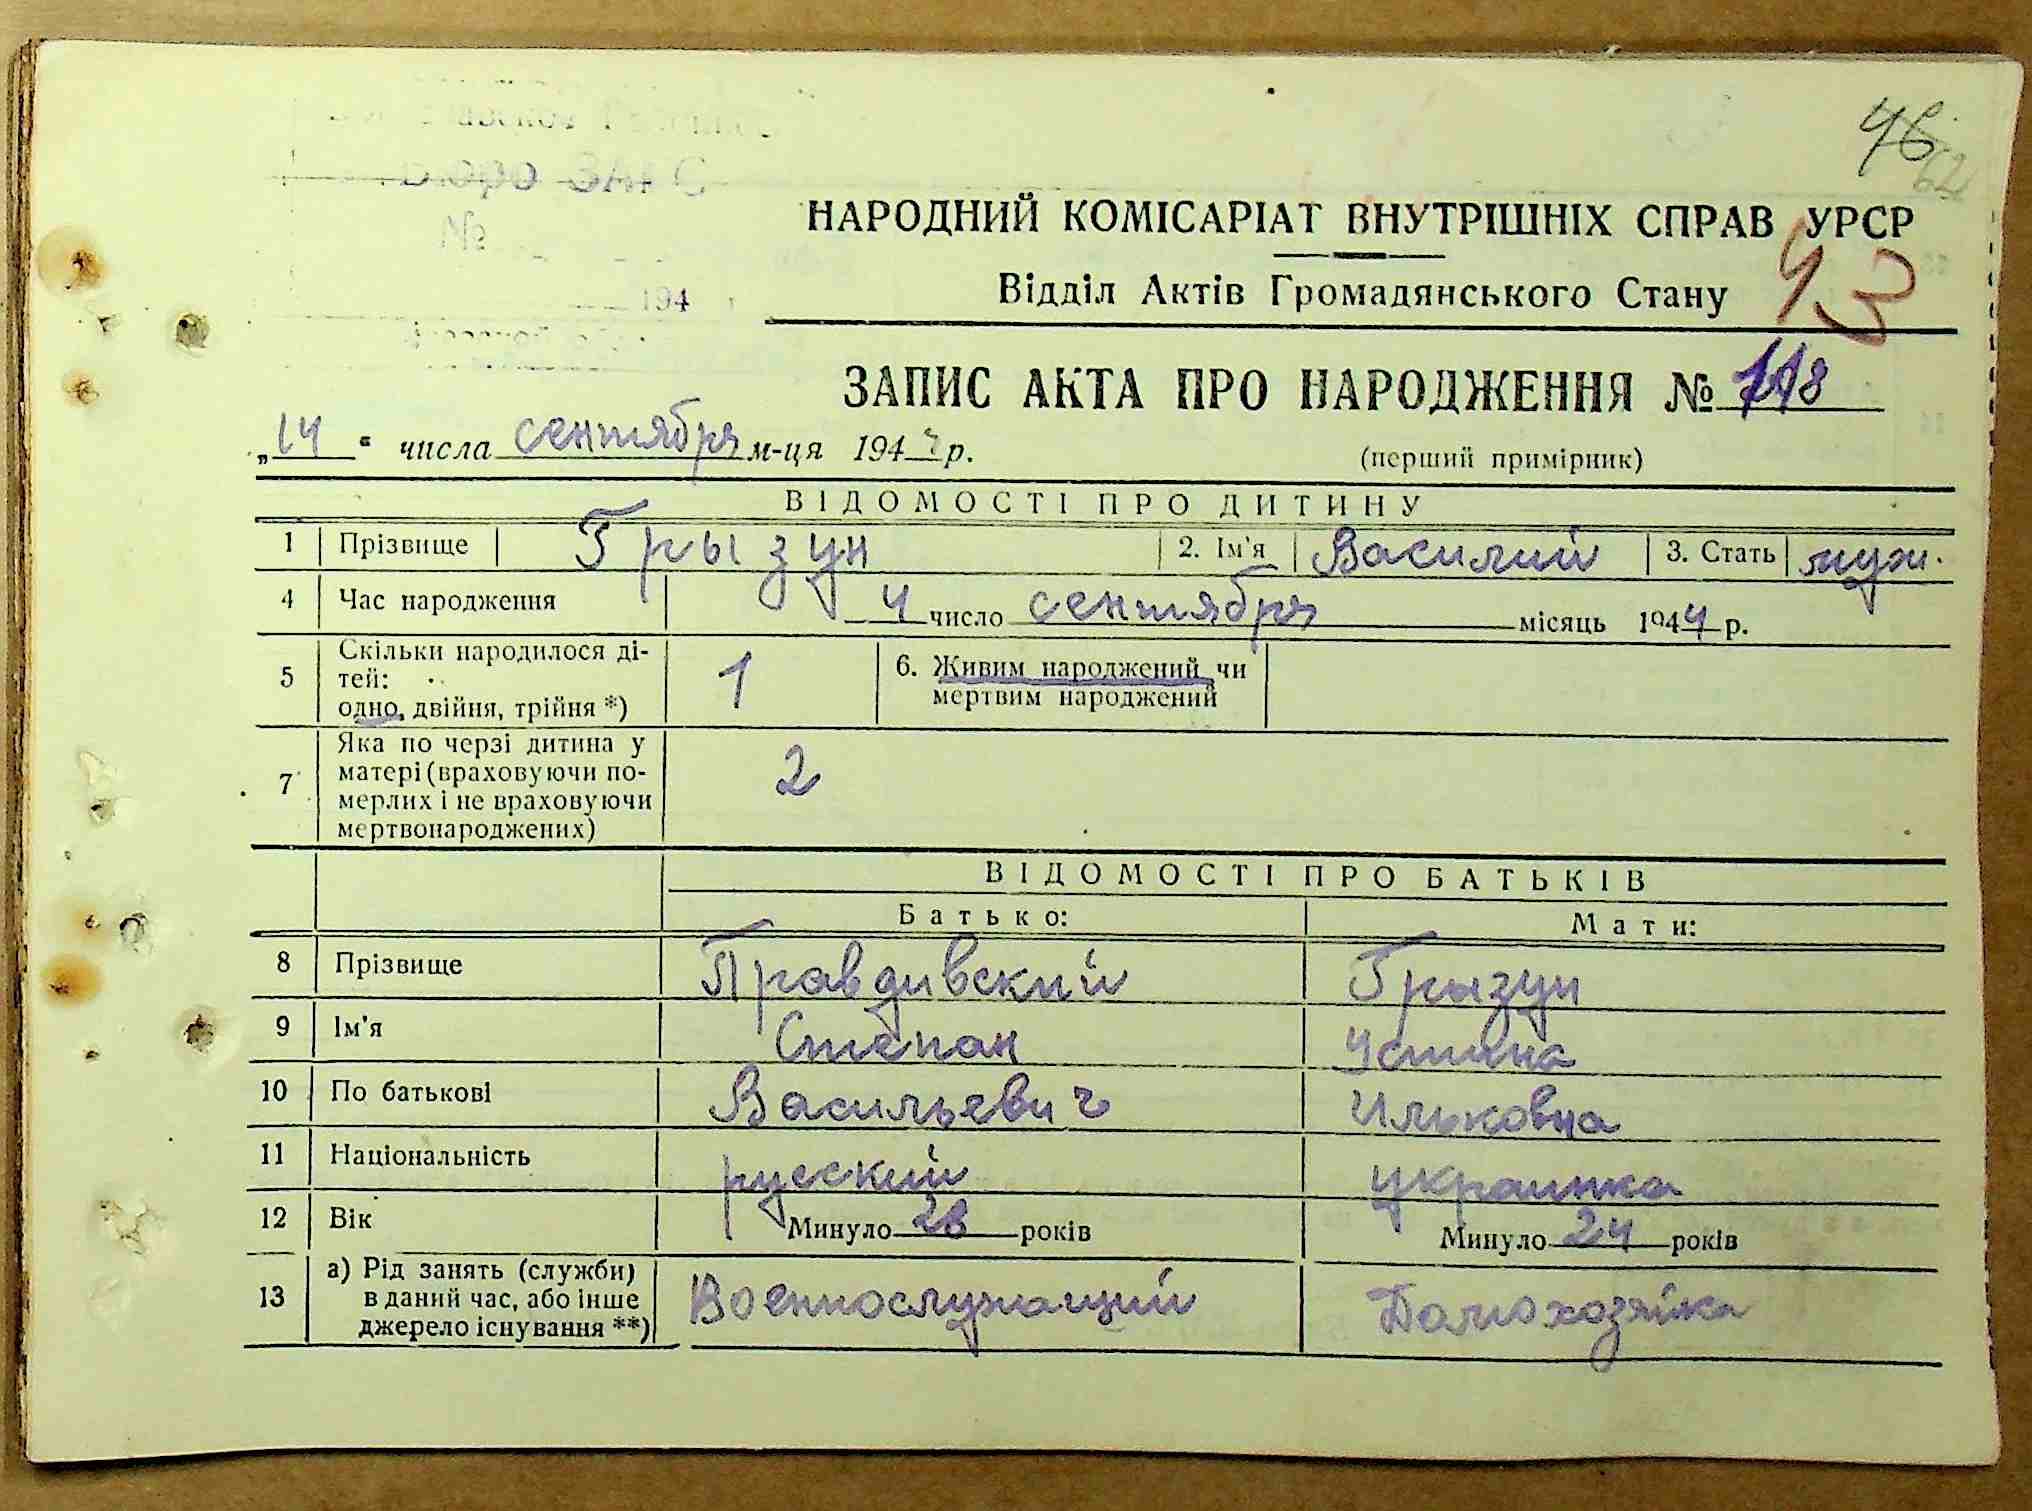 46
62
Бюро ЗАГС
№
194
НАРОДНИЙ КОМІСАРІАТ ВНУТРІШНІХ СПРАВ УРСР
43
Відділ Актів Громадянського Стану
ЗАПИС АКТА ПРО НАРОДЖЕННЯ № 118
„14“ числа сентября м-ця 1944 р.
(перший примірник)
ВІДОМОСТІ ПРО ДИТИНУ
1 Прізвище Грызун 2. Ім'я Василий 3. Стать муж.
4 Час народження 4 число сентября місяць 1944 р.
5 Скільки народилося ді-
тей:
одно, двійня, трійня *) 1
6. Живим народжений чи
мертвим народжений
7 Яка по черзі дитина у
матері (враховуючи по-
мерлих і не враховуючи
мертвонароджених) 2
ВІДОМОСТІ ПРО БАТЬКІВ
Батько: Мати:
8 Прізвище Правдивский Грызун
9 Ім'я Степан Устина
10 По батькові Васильевич Ильковна
11 Національність русский украинка
12 Вік Минуло 28 років Минуло 24 років
13 а) Рід занять (служби)
в даний час, або інше
джерело існування **) Военнослужащий Домохозяйка